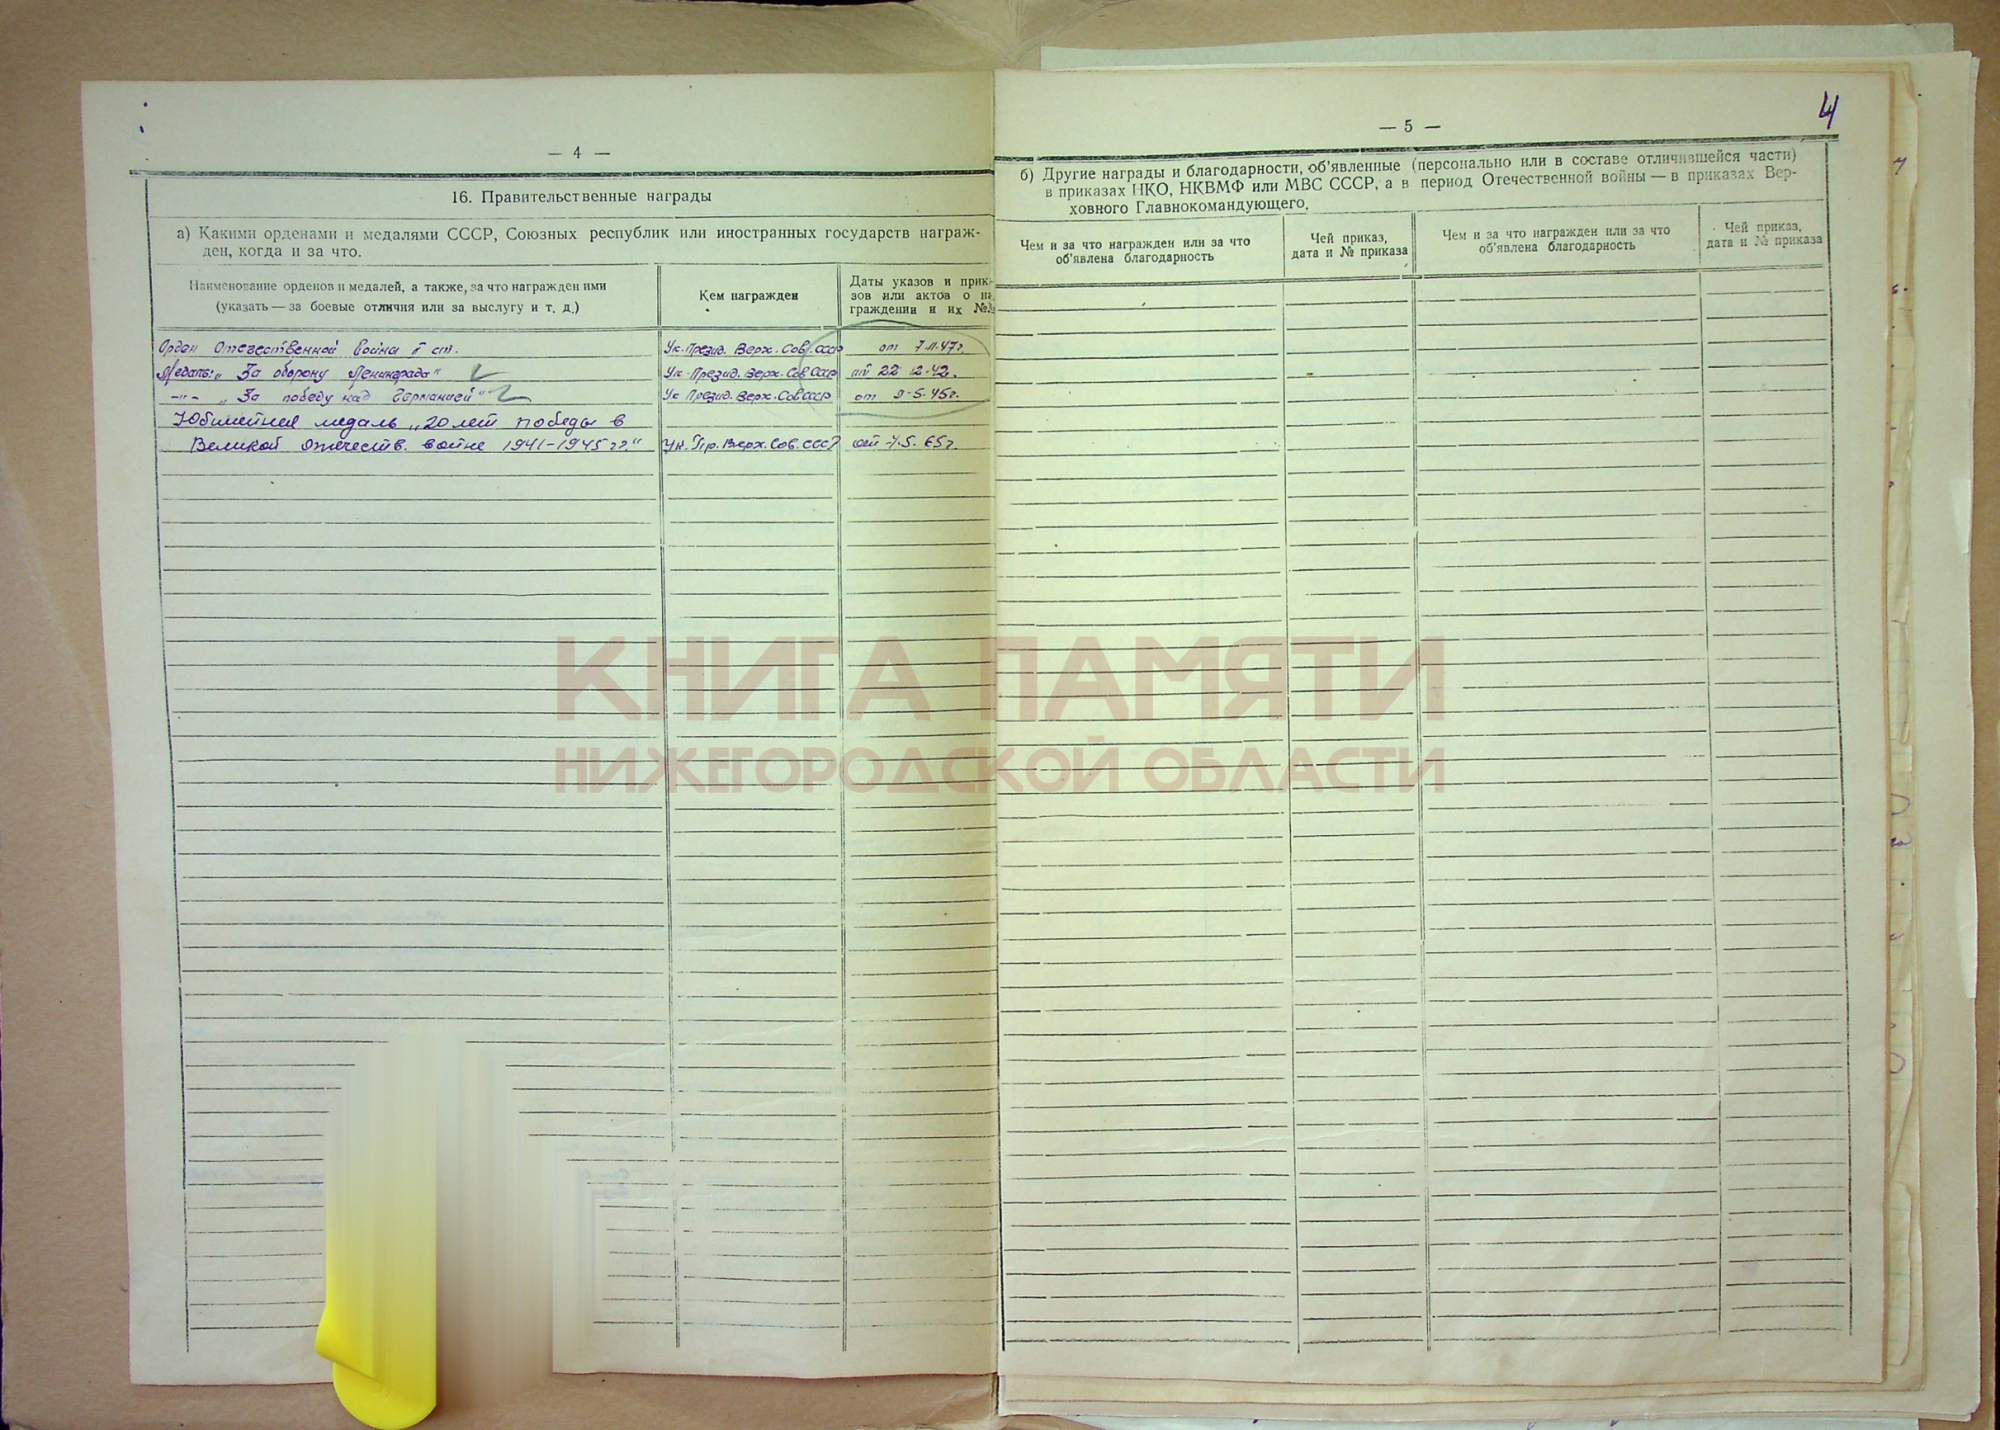 — 4 —
16. Правительственные награды
а) Какими орденами и медалями СССР, Союзных республик или иностранных государств награж-
ден, когда и за что.
Наименование орденов и медалей, а также, за что награжден ими
(указать — за боевые отличия или за выслугу и т. д.)
Кем награжден
Даты указов и прик-
зов или актов о на
граждении и их №№
Орден Отечественной война II ст. Ук. Презид. Верх. Сов. СССР от 7.11.47г.
Медаль: „За оборону Ленинграда" Ук. Презид. Верх. Сов СССР от 22 12.42.
-"- „За победу над Германией" Ук Презид. Верх. Сов СССР от 9.5.45г.
Юбилейная медаль „20 лет победы в
Великой Отечеств. войне 1941-1945 гг." Ук. Пр. Верх. Сов. СССР от 7.5.65г.
4
— 5 —
б) Другие награды и благодарности, об'явленные (персонально или в составе отличившейся части)
в приказах НКО, НКВМФ или МВС СССР, а в период Отечественной войны — в приказах Вер-
ховного Главнокомандующего.
Чем и за что награжден или за что
об'явлена благодарность
Чей приказ,
дата и № приказа
Чем и за что награжден или за что
об'явлена благодарность
Чей приказ,
дата и № приказа
КНИГА ПАМЯТИ
НИЖЕГОРОДСКОЙ ОБЛАСТИ